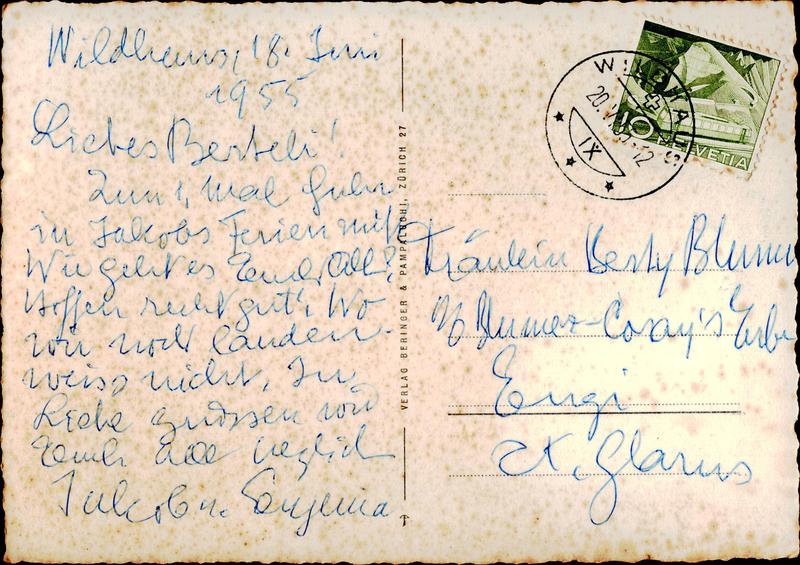 Wildhaus, 18. Juni
1955
Liebes Berteli!
Zum 1. mal
in Jakobs Ferien mit
Wie geht es Euch All?
Hoffen recht gut! Wo
wir noch landen
weiss nicht. In
Liebe grüssen wir
Euch alle herzlich
Jakob u. Eugenia
VERLAG BERINGER & PAMPALUCHI, ZÜRICH 27
WILDHAUS
20. 12
IX
10 HELVETIA
Fräulein Berty Blumer
Blumer-Coray's Erbe
Engi
Kt. Glarus